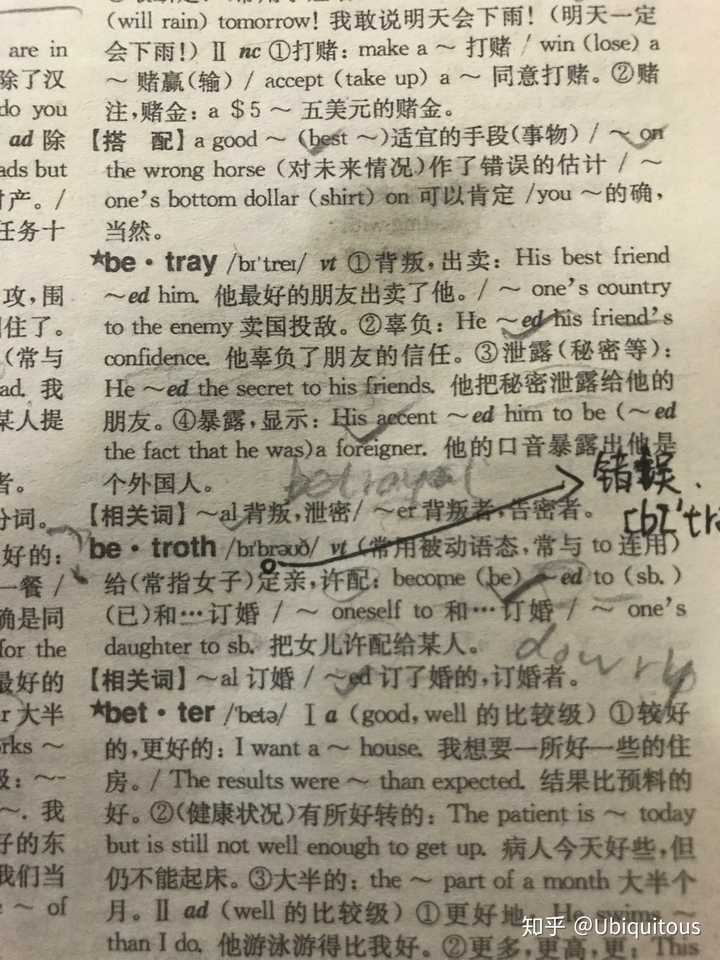 (will rain) tomorrow! 我敢说明天会下雨!(明天一定
are in 会下雨!) Ⅱ nc ①打赌: make a ~ 打赌 / win (lose) a
除了汉 ~ 赌赢(输) / accept (take up) a ~ 同意打赌。②赌
do you 注,赌金: a $5 ~ 五美元的赌金。
ad 除 【搭 配】a good ~ (best ~)适宜的手段(事物) / ~ on
ads but the wrong horse (对未来情况)作了错误的估计 / ~
产。/ one's bottom dollar (shirt) on 可以肯定 /you ~的确,
任务十 当然。
★be·tray /bɪ'treɪ/ vt ①背叛,出卖: His best friend
攻,围 ~ed him. 他最好的朋友出卖了他。/ ~ one's country
住了。 to the enemy 卖国投敌。②辜负: He ~ed his friend's
(常与 confidence. 他辜负了朋友的信任。③泄露(秘密等):
ad. 我 He ~ed the secret to his friends. 他把秘密泄露给他的
某人提 朋友。④暴露,显示: His accent ~ed him to be (~ed
the fact that he was)a foreigner. 他的口音暴露出他是
者。 个外国人。
betrayal
错误.
分词。 【相关词】~al 背叛,泄密/ ~er 背叛者,告密者。
[bɪ'tr
好的: be·troth /bɪ'brəʊð/ vt (常用被动语态,常与 to 连用)
一餐 / 给(常指女子)定亲,许配: become (be) ~ed to (sb.)
确是同 (已)和…订婚 / ~ oneself to 和…订婚 / ~ one's
for the daughter to sb. 把女儿许配给某人。
dowry
最好的 【相关词】~al 订婚 / ~ed 订了婚的,订婚者。
r 大半 ★bet·ter /'betə/ Ⅰ a (good, well 的比较级) ①较好
rks ~ 的,更好的: I want a ~ house. 我想要一所好一些的住
级: ~- 房。/ The results were ~ than expected. 结果比预料的
~. 我 好。②(健康状况)有所好转的: The patient is ~ today
子的东 but is still not well enough to get up. 病人今天好些,但
我们当 仍不能起床。③大半的: the ~ part of a month 大半个
~ of 月。Ⅱ ad (well 的比较级) ①更好地: He swims ~
than I do. 他游泳游得比我好。②更多,更高,更: This
知乎 @Ubiquitous